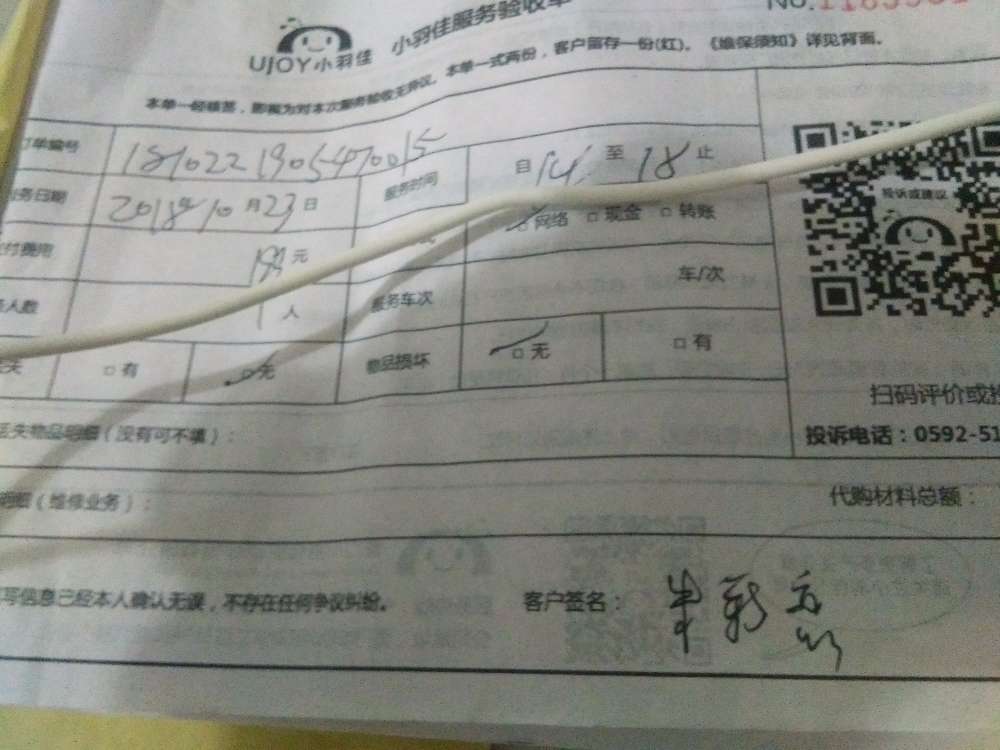 小羽佳服务验收单 No.1183931
UJOY小羽佳
本单一经核签，即视为对本次服务验收无异议。本单一式两份，客户留存一份(红)。《维保须知》详见背面。
订单编号 1810221905470015 服务时间 自 14 至 18 止
服务日期 2018年10月23日
付费用 元 网络 □ 现金 □ 转账
人数 1 人 服务车次 车/次
失 □ 有 □ 无 物品损坏 □ 无 □ 有
投诉或建议
扫码评价或投
投诉电话：0592-51
丢失物品明细（没有可不填）：
明细（维修业务）： 代购材料总额：
写信息已经本人确认无误，不存在任何争议纠纷。 客户签名：